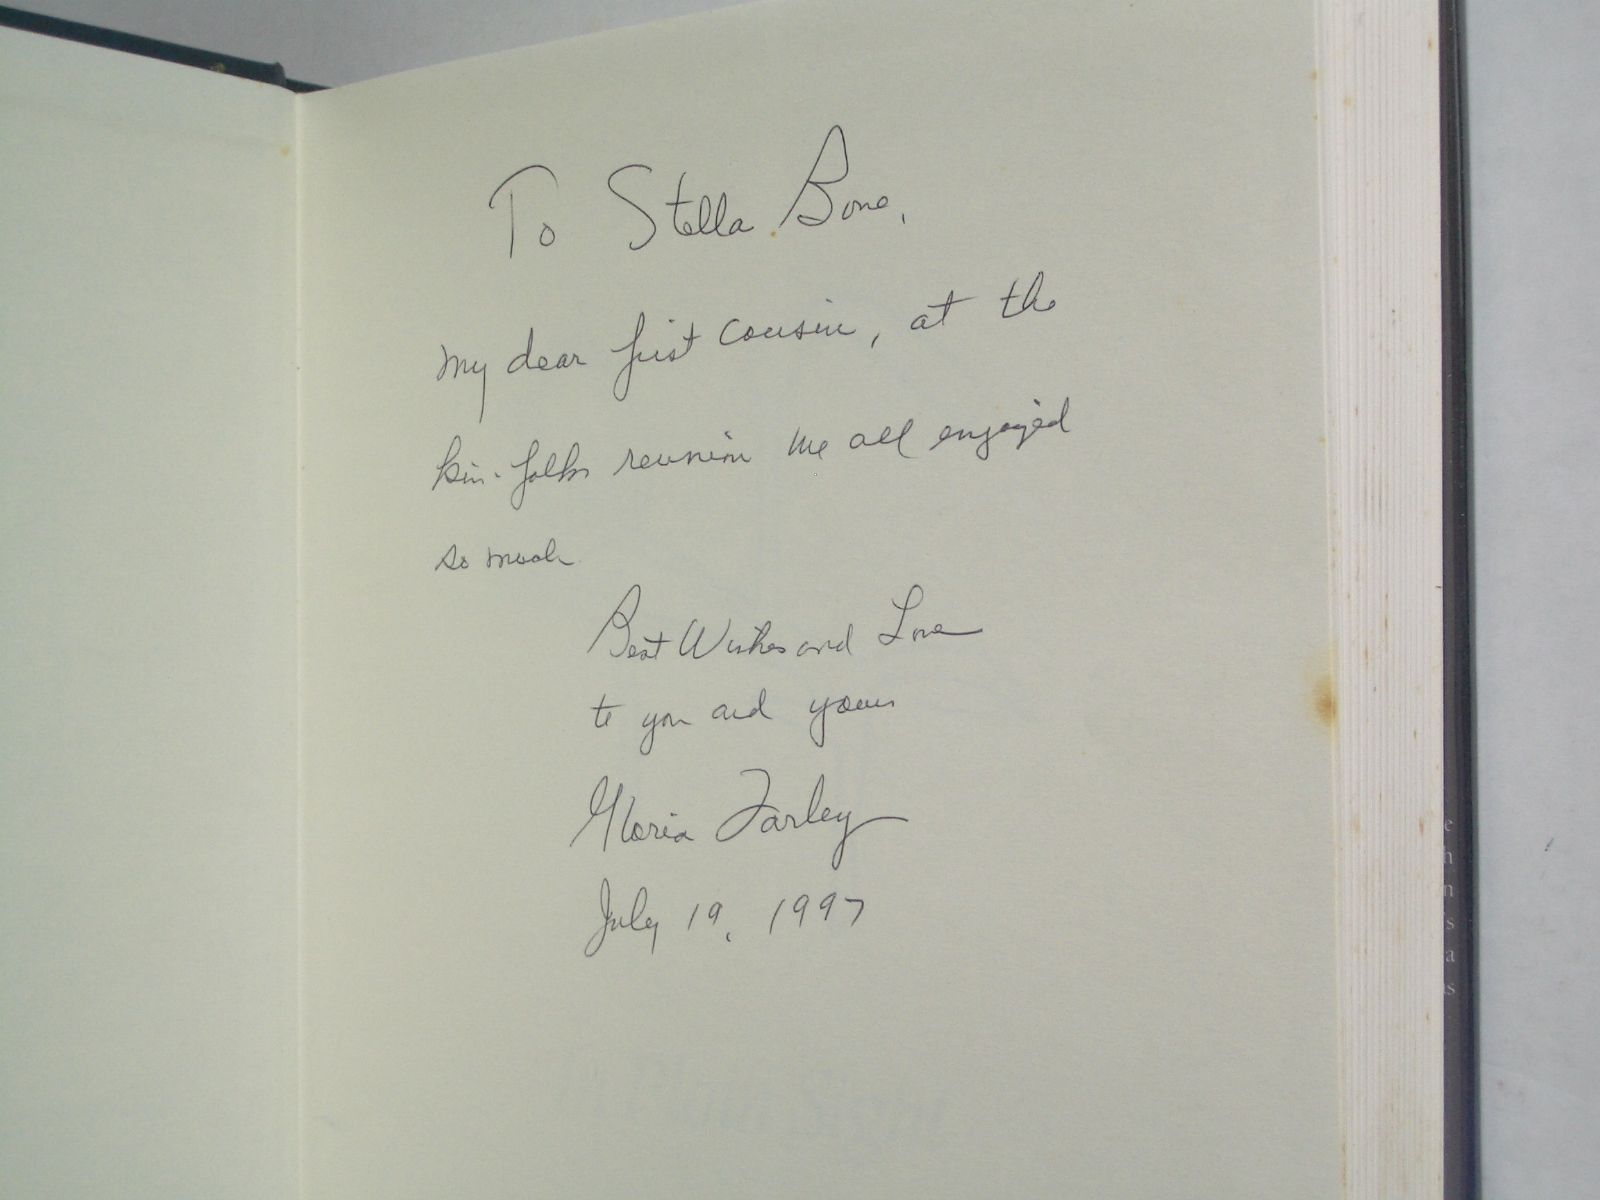 To Stella Bone,
my dear first cousin, at the
kin-folks reunion we all enjoyed
so much
Best Wishes and Love
to you and yours
Gloria Farley
July 19, 1997
e
h
n
's
a
as